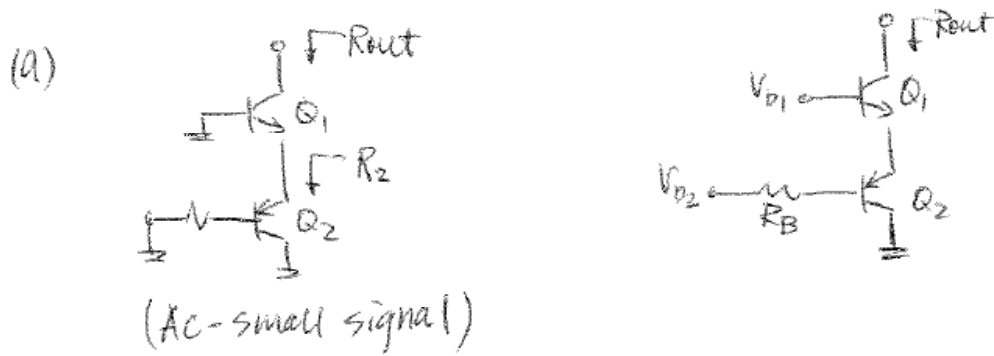 (a)
Rout
Q1
R2
Q2
(Ac-small signal)
Rout
Vb1
Q1
Vb2
RB
Q2